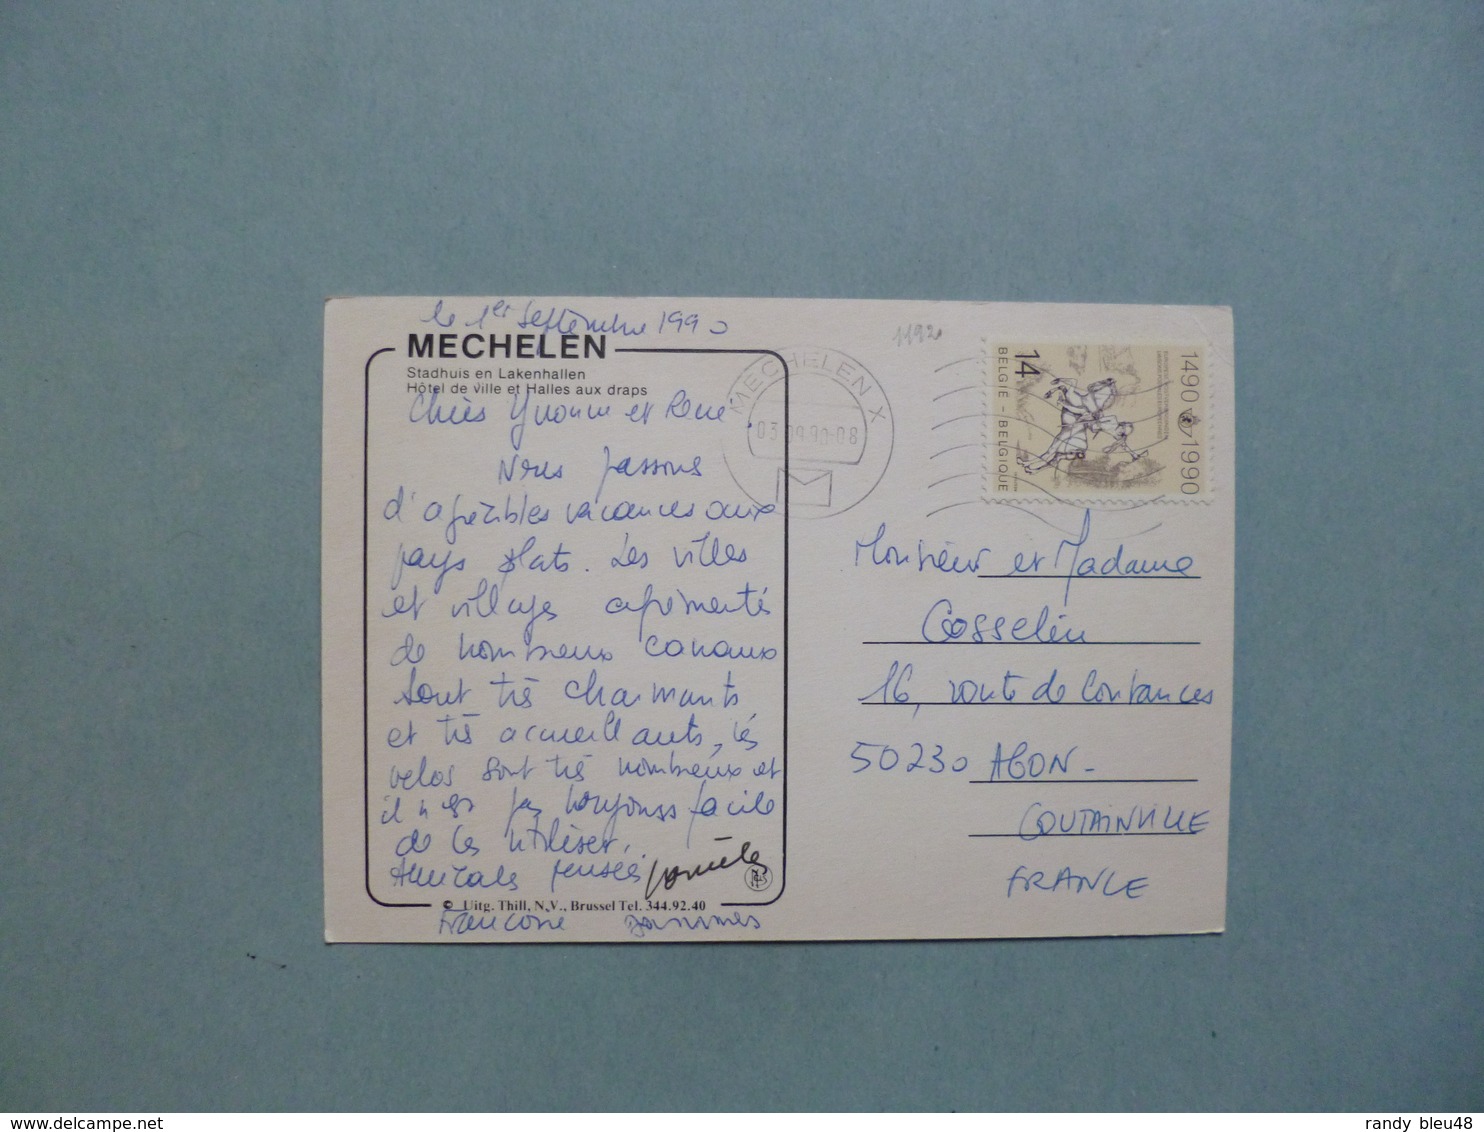 le 1er Septembre 1990
MECHELEN
Stadhuis en Lakenhallen
Hôtel de ville et Halles aux draps
Chers Yvonne et René.
Nous passons
d'agréables vacances aux
pays plats. Les villes
et villages agrémentés
de nombreux canaux
sont très charmants
et très accueillants, les
velos sont très nombreux et
il n'est pas toujours facile
de les utiliser.
Amicales pensées
Francoise
© Uitg. Thill, N.V., Brussel Tel. 344.92.40
1192
MECHELEN X
03.09.90-08
14
BELGIE - BELGIQUE
1490 1990
Monsieur et Madame
Gosselin
16, route de Coutances
50230 AGON-
COUTAINVILLE
FRANCE
randy_bleu48